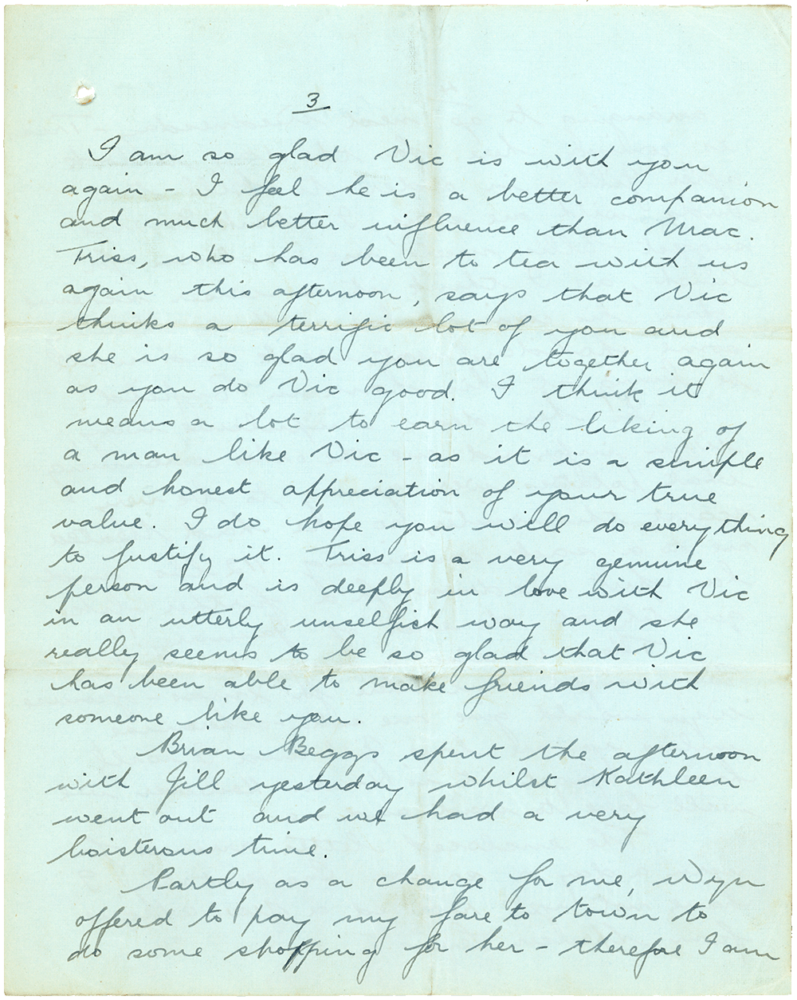 3
I am so glad Vic is with you
again - I feel he is a better companion
and much better influence than Mac.
Triss, who has been to tea with us
again this afternoon, says that Vic
thinks a terrific lot of you and
she is so glad you are together again
as you do Vic good. I think it
means a lot to earn the liking of
a man like Vic - as it is a simple
and honest appreciation of your true
value. I do hope you will do everything
to justify it. Triss is a very genuine
person and is deeply in love with Vic
in an utterly unselfish way and she
really seems to be so glad that Vic
has been able to make friends with
someone like you.
Brian Beggs spent the afternoon
with Jill yesterday whilst Kathleen
went out and we had a very
boisterous time.
Partly as a change for me, Wyn
offered to pay my fare to town to
do some shopping for her - therefore I am